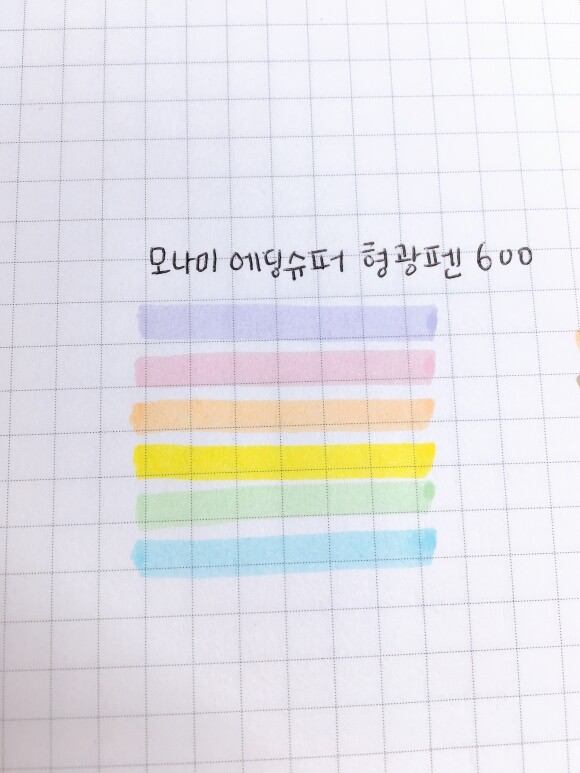 모나미 에딩슈퍼 형광펜 600